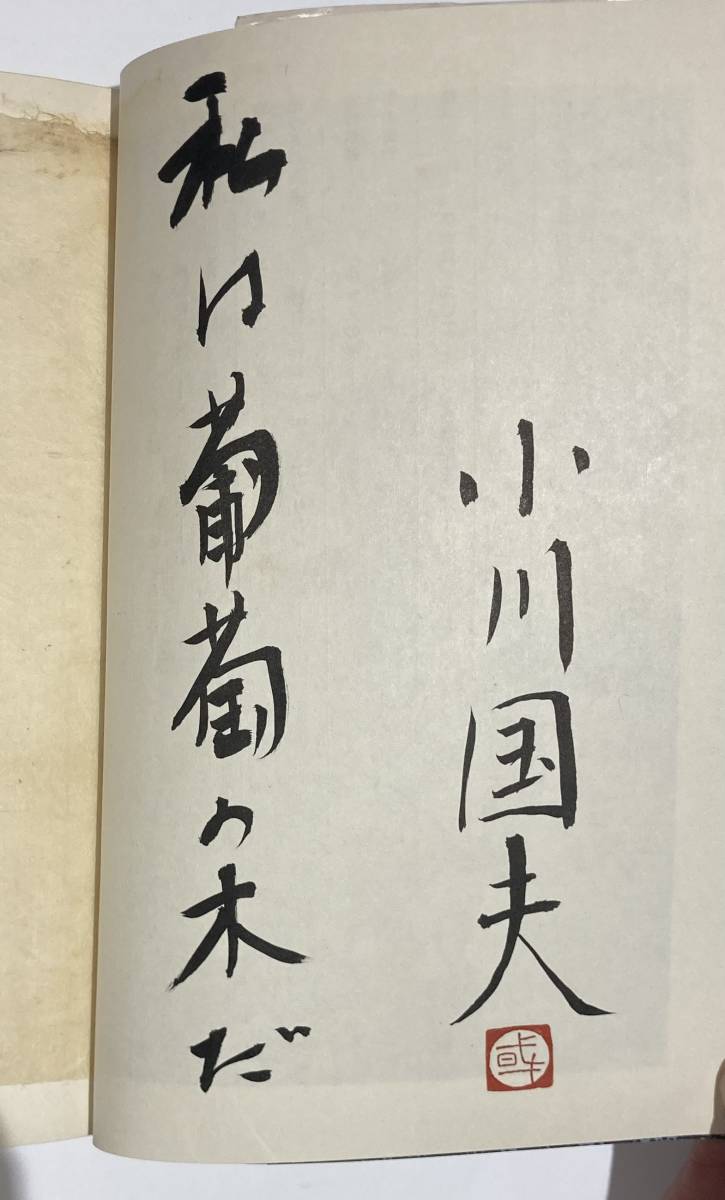 小川国夫
私は葡萄の木だ